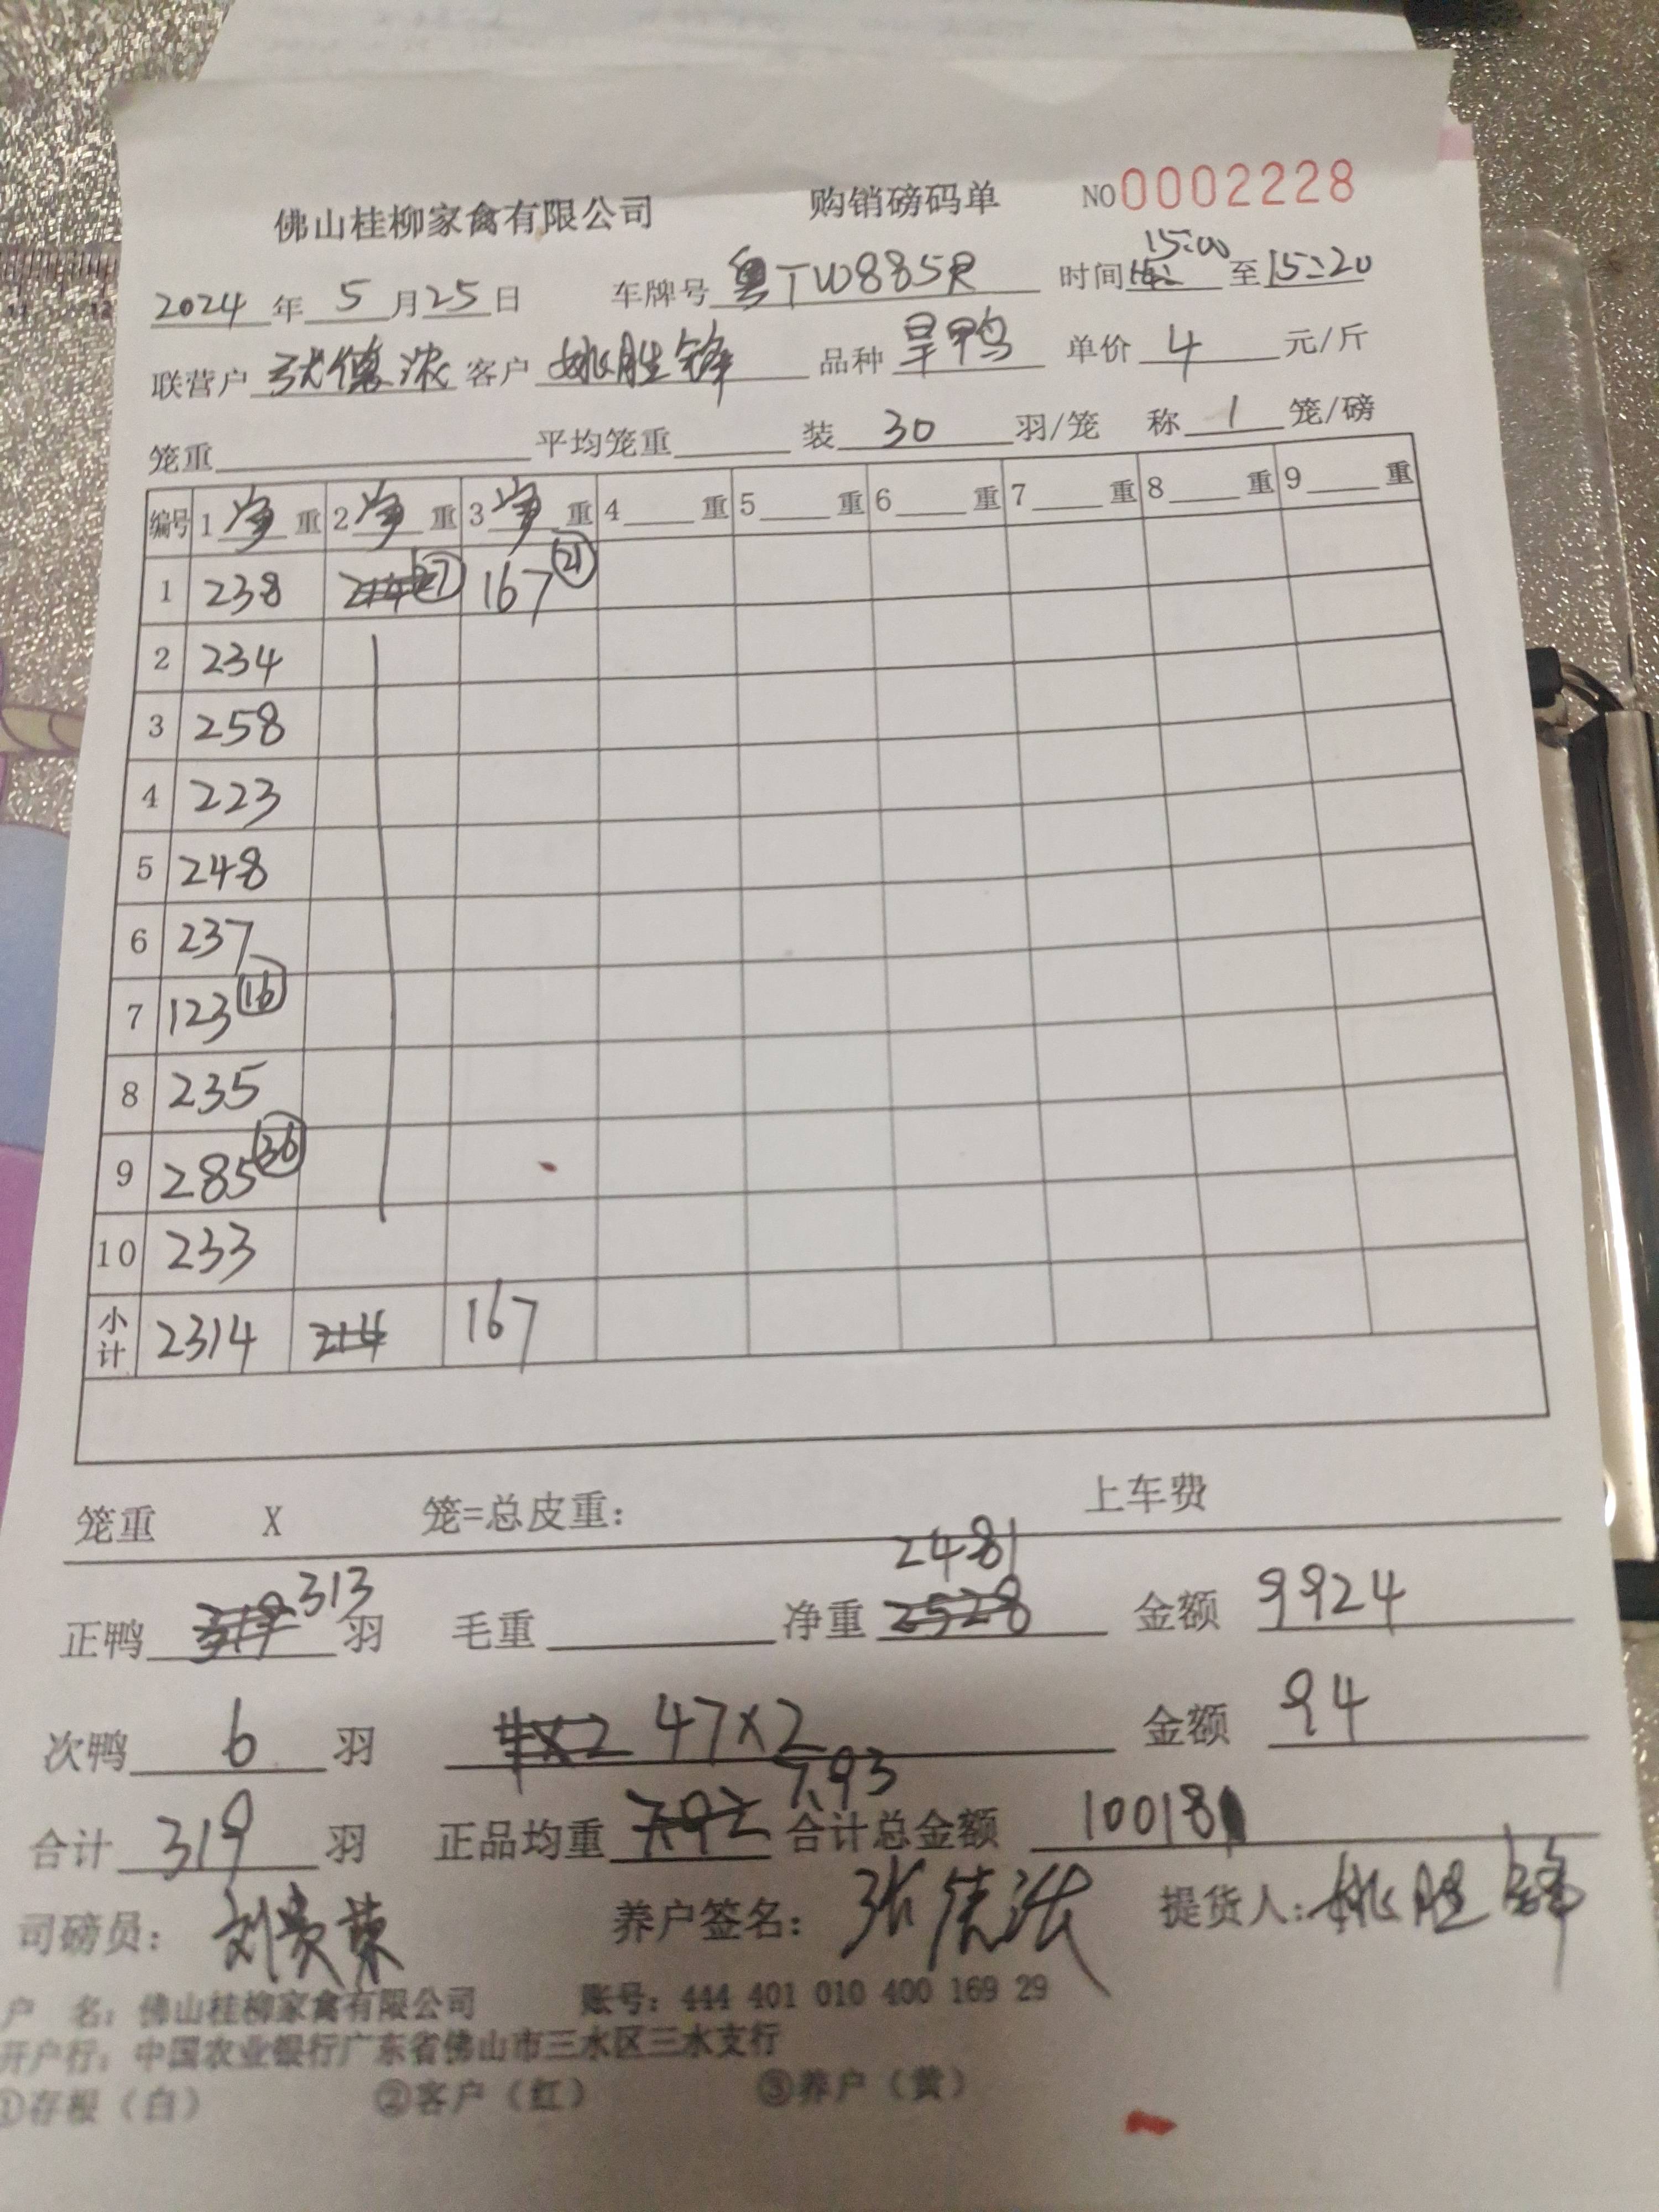 佛山桂柳家禽有限公司 购销磅码单 NO0002228
2024年5月25日 车牌号 粤TW885R 时间 15:00 至 15:20
联营户 张德浓 客户 姚胜锋 品种 旱鸭 单价 4 元/斤
笼重 平均笼重 装 30 羽/笼 称 1 笼/磅
编号 1 净 重 2 净 重 3 净 重 4 重 5 重 6 重 7 重 8 重 9 重
1 238 214 27 167 21
2 234
3 258
4 223
5 248
6 237
7 123 16
8 235
9 285 36
10 233
小计 2314 214 167
笼重 X 笼=总皮重: 上车费
正鸭 319 313 羽 毛重 净重 2528 2481 金额 9924
次鸭 6 羽 47×2 金额 94
合计 319 羽 正品均重 7.92 7.93 合计总金额 10018
司磅员: 刘贵荣 养户签名: 张德浓 提货人: 姚胜锋
户 名: 佛山桂柳家禽有限公司 账号: 444 401 010 400 169 29
开户行: 中国农业银行广东省佛山市三水区三水支行
①存根（白） ②客户（红） ③养户（黄）